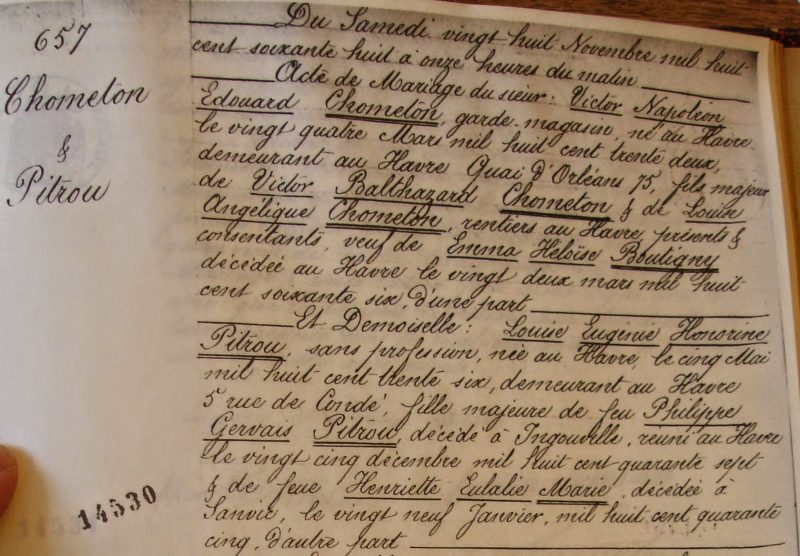 657
Chometon
&
Pitrou
14530
Du Samedi vingt huit Novembre mil huit-
cent soixante huit à onze heures du matin
Acte de Mariage du sieur: Victor Napoléon
Edouard Chometon, garde-magasin, né au Havre
le vingt quatre Mars mil huit cent trente deux,
demeurant au Havre Quai d'Orléans 75, fils majeur
de Victor Balthazard Chometon & de Louise
Angélique Chometon, rentiers au Havre, présents &
consentants, veuf de Emma Heloïse Bouligny
décédée au Havre le vingt deux mars mil huit-
cent soixante six, d'une part
Et Demoiselle: Louise Eugenie Honorine
Pitrou, sans profession, née au Havre, le cinq Mai
mil huit cent trente six, demeurant au Havre
5 rue de Condé, fille majeure de feu Philippe
Gervais Pitrou, décédé à Ingouville, réuni au Havre
le vingt cinq décembre mil huit cent quarante sept
& de feue Henriette Eulalie Marie, décédée à
Sanvic, le vingt neuf Janvier, mil huit cent quarante
cinq, d'autre part